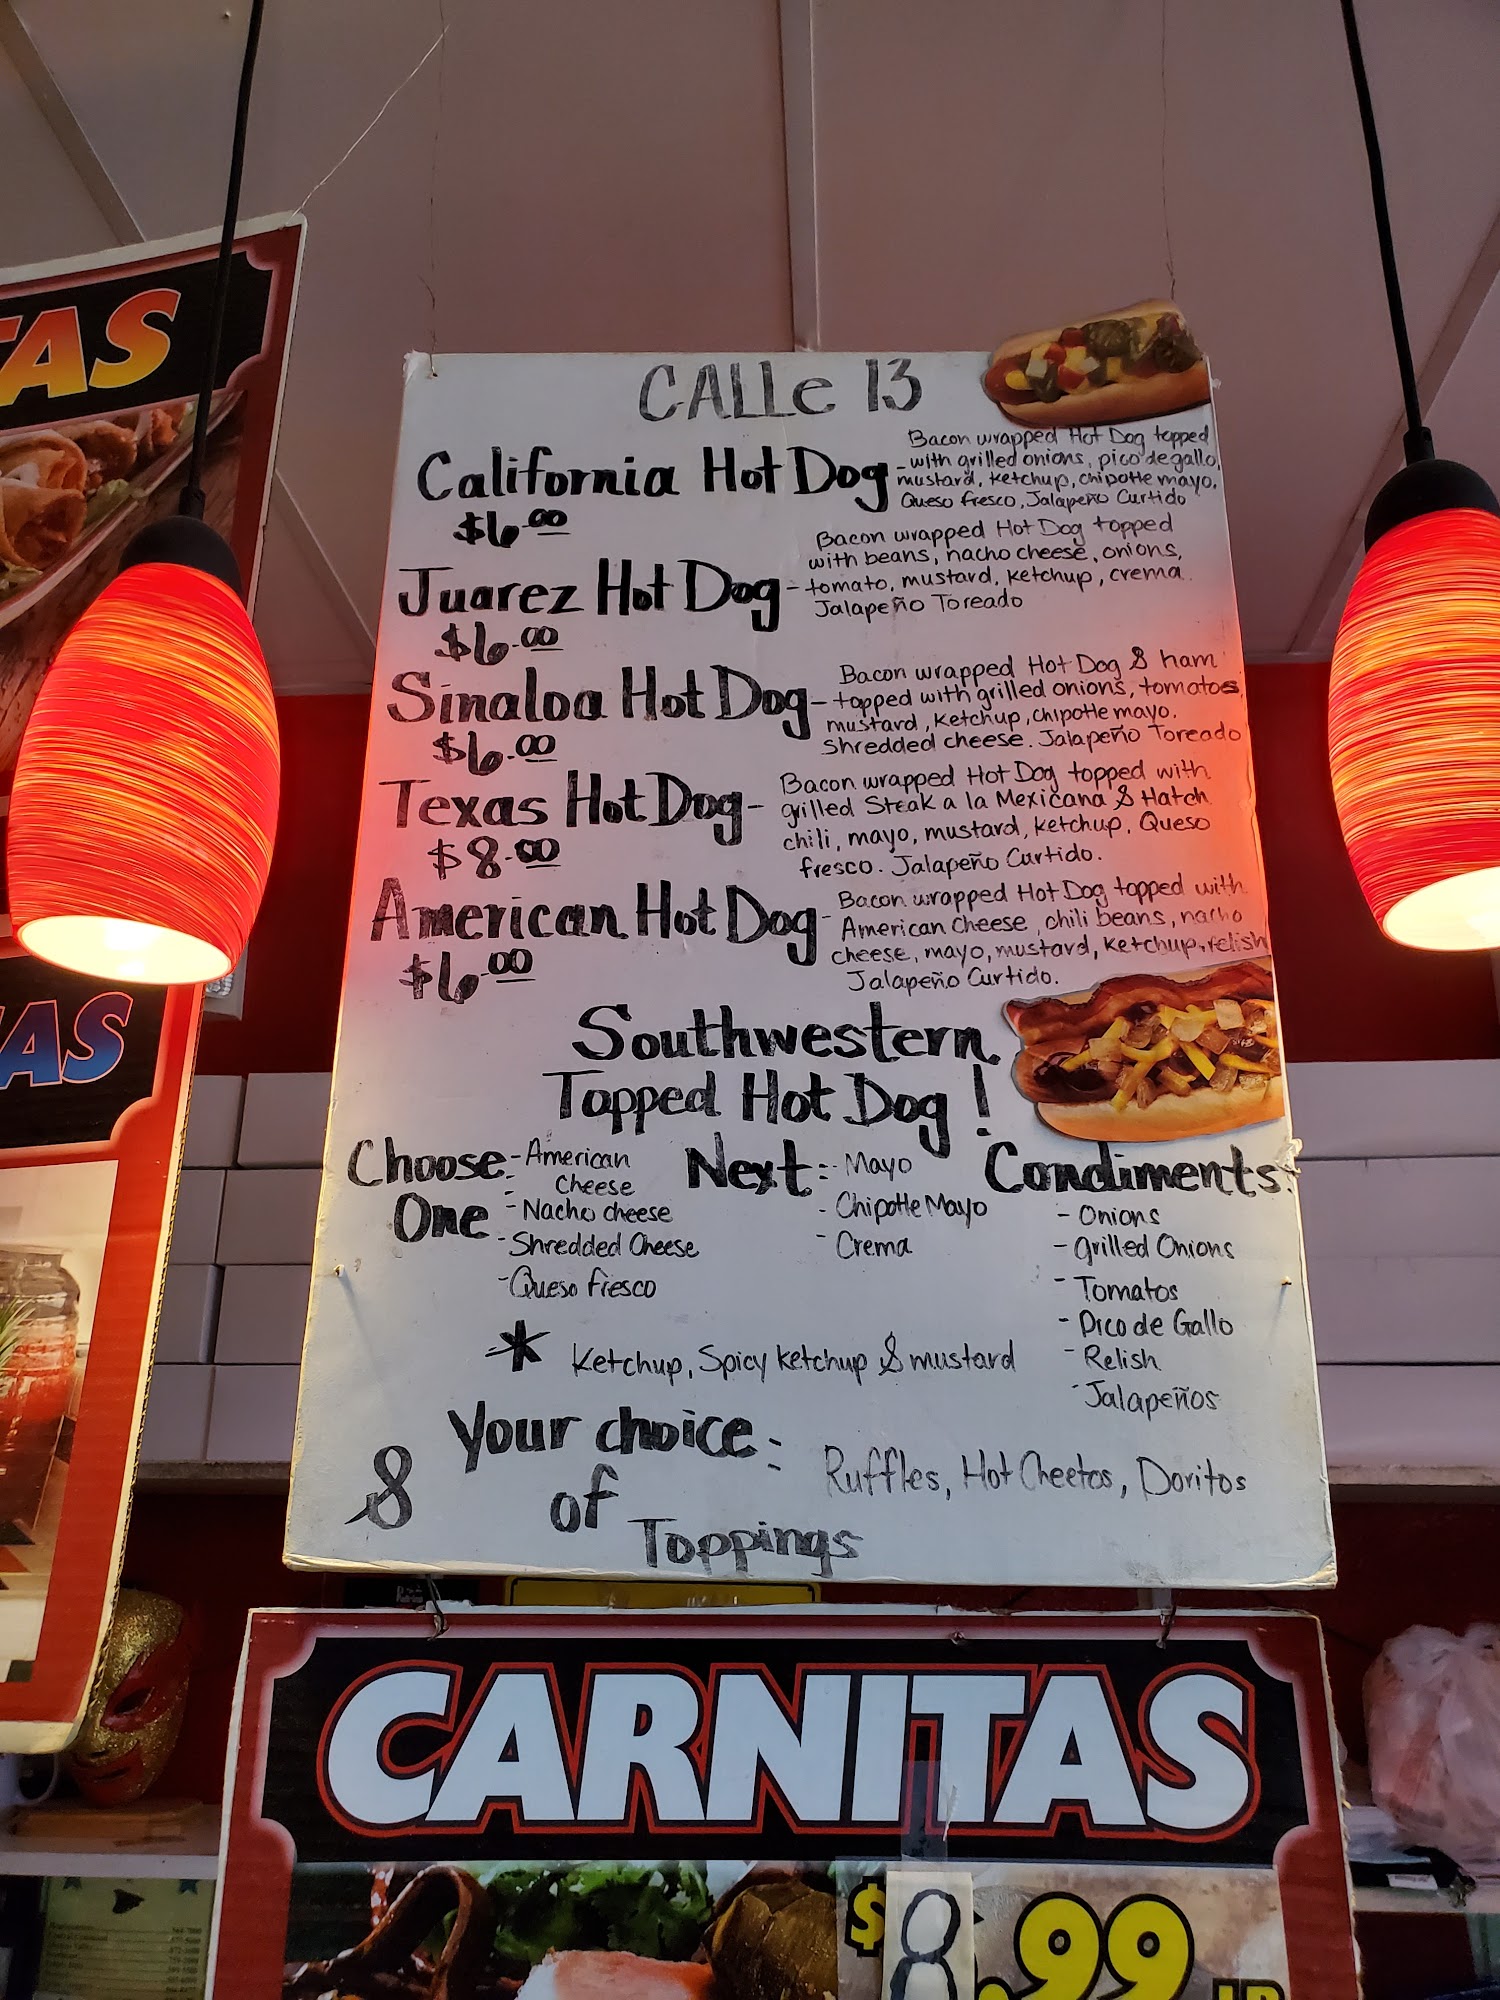 TAS
CALLe 13
California Hot Dog -
$6.00
Bacon wrapped Hot Dog topped
with grilled onions, pico de gallo,
mustard, ketchup, chipotle mayo,
Queso fresco, Jalapeño Curtido
Juarez Hot Dog -
$6.00
Bacon wrapped Hot Dog topped
with beans, nacho cheese, onions,
tomato, mustard, ketchup, crema.
Jalapeño Toreado
Sinaloa Hot Dog -
$6.00
Bacon wrapped Hot Dog & ham
topped with grilled onions, tomatoes,
mustard, ketchup, chipotle mayo.
shredded cheese. Jalapeño Toreado
Texas Hot Dog -
$8.00
Bacon wrapped Hot Dog topped with
grilled Steak a la Mexicana & Hatch
chili, mayo, mustard, ketchup. Queso
fresco. Jalapeño Curtido.
American Hot Dog -
$6.00
Bacon wrapped Hot Dog topped with
American cheese, chili beans, nacho
cheese, mayo, mustard, ketchup, relish
Jalapeño Curtido.
AS
Southwestern
Topped Hot Dog!
Choose
One
- American
Cheese
- Nacho cheese
- Shredded Cheese
- Queso fresco
Next:
- Mayo
- Chipotle Mayo
- Crema
Condiments:
- Onions
- grilled Onions
- Tomatos
- Pico de Gallo
- Relish
- Jalapeños
* Ketchup, Spicy ketchup & mustard
& Your choice:
of
Toppings
Ruffles, Hot Cheetos, Doritos
CARNITAS
$8.99
LB